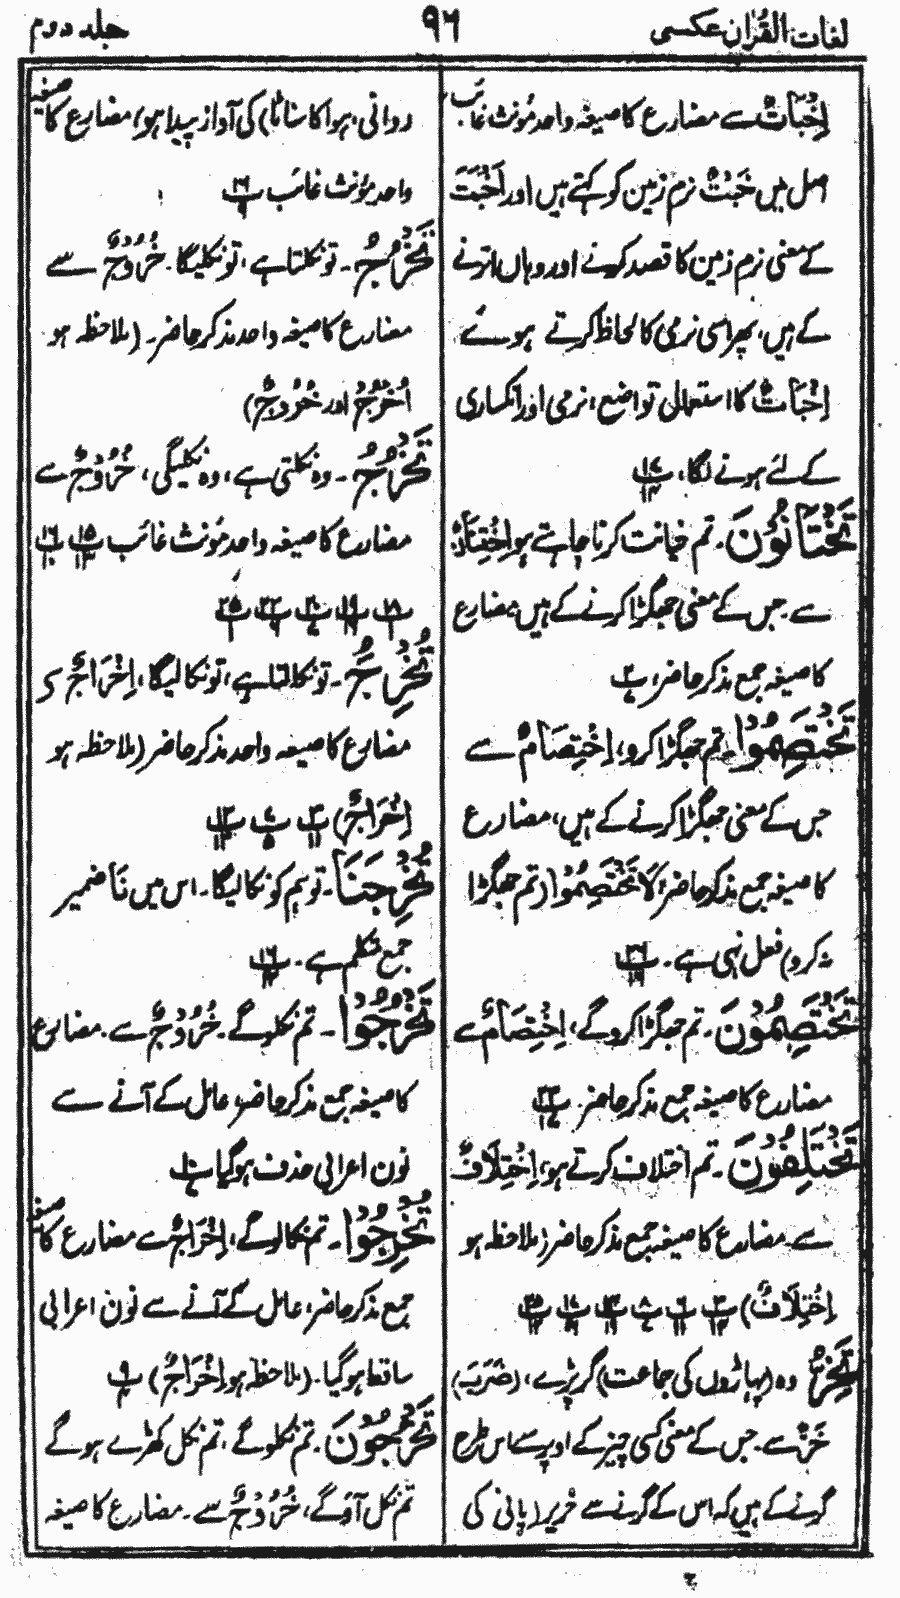 لغات القرآن عکسی
۹۶
جلد دوم
اِخْبَاتٌ سے مضارع کا صیغہ واحد مؤنث غائب
اصل میں خَبْتٌ نرم زمین کو کہتے ہیں اور اَخْبَتَ
کے معنی نرم زمین کا قصد کرنے اور وہاں اترنے
کے ہیں، پھر اسی نرمی کا لحاظ کرتے ہوئے
اِخْبَاتٌ کا استعمال تواضع، نرمی اور انکساری
کے لئے ہونے لگا،
تَخْتَانُوْنَ۔ تم خیانت کرنا چاہتے ہو اِخْتِیَانٌ
سے۔ جس کے معنی جھگڑا کرنے کے ہیں مضارع
کا صیغہ جمع مذکر حاضر،
تَخْتَصِمُوْا۔ تم جھگڑا کرو، اِخْتِصَامٌ سے
جس کے معنی جھگڑا کرنے کے ہیں، مضارع
کا صیغہ جمع مذکر حاضر، لَا تَخْتَصِمُوْا (تم جھگڑا
نہ کرو) فعل نہی ہے۔
تَخْتَصِمُوْنَ۔ تم جھگڑا کرو گے، اِخْتِصَامٌ سے
مضارع کا صیغہ جمع مذکر حاضر۔
تَخْتَلِفُوْنَ۔ تم اختلاف کرتے ہو، اِخْتِلَافٌ
سے۔ مضارع کا صیغہ جمع مذکر حاضر (ملاحظہ ہو
اِخْتِلَافٌ)
تَخِرُّ وہ (پہاڑوں کی جماعت) گر پڑے، (ضَرَبَ)
خَرٌّ سے۔ جس کے معنی کسی چیز کے اوپر سے اس طرح
گرنے کے ہیں کہ اس کے گرنے سے خریر (پانی کی
روانی، ہوا کا سناٹا) کی آواز پیدا ہو، مضارع کا صیغہ
واحد مؤنث غائب
تَخْرُجُ۔ تو نکلتا ہے، تو نکلیگا۔ خُرُوْجٌ سے
مضارع کا صیغہ واحد مذکر حاضر۔ (ملاحظہ ہو
اُخْرُجْ اور خُرُوْجٌ)
تَخْرُجُ۔ وہ نکلتی ہے، وہ نکلیگی، خُرُوْجٌ سے
مضارع کا صیغہ واحد مؤنث غائب
تُخْرِجُ۔ تو نکالتا ہے، تو نکالیگا، اِخْرَاجٌ سے
مضارع کا صیغہ واحد مذکر حاضر (ملاحظہ ہو
اِخْرَاجٌ)
تُخْرِجَنَا۔ تو ہم کو نکالیگا۔ اس میں نَا ضمیر
جمع متکلم ہے۔
تَخْرُجُوْا۔ تم نکلو گے۔ خُرُوْجٌ سے۔ مضارع
کا صیغہ جمع مذکر حاضر، عامل کے آنے سے
نون اعرابی حذف ہو گیا
تُخْرِجُوْا۔ تم نکالو گے، اِخْرَاجٌ سے مضارع کا صیغہ
جمع مذکر حاضر، عامل کے آنے سے نون اعرابی
ساقط ہو گیا۔ (ملاحظہ ہو اِخْرَاجٌ)
تَخْرُجُوْنَ۔ تم نکلو گے، تم نکل کھڑے ہو گے
تم نکل آؤ گے، خُرُوْجٌ سے۔ مضارع کا صیغہ